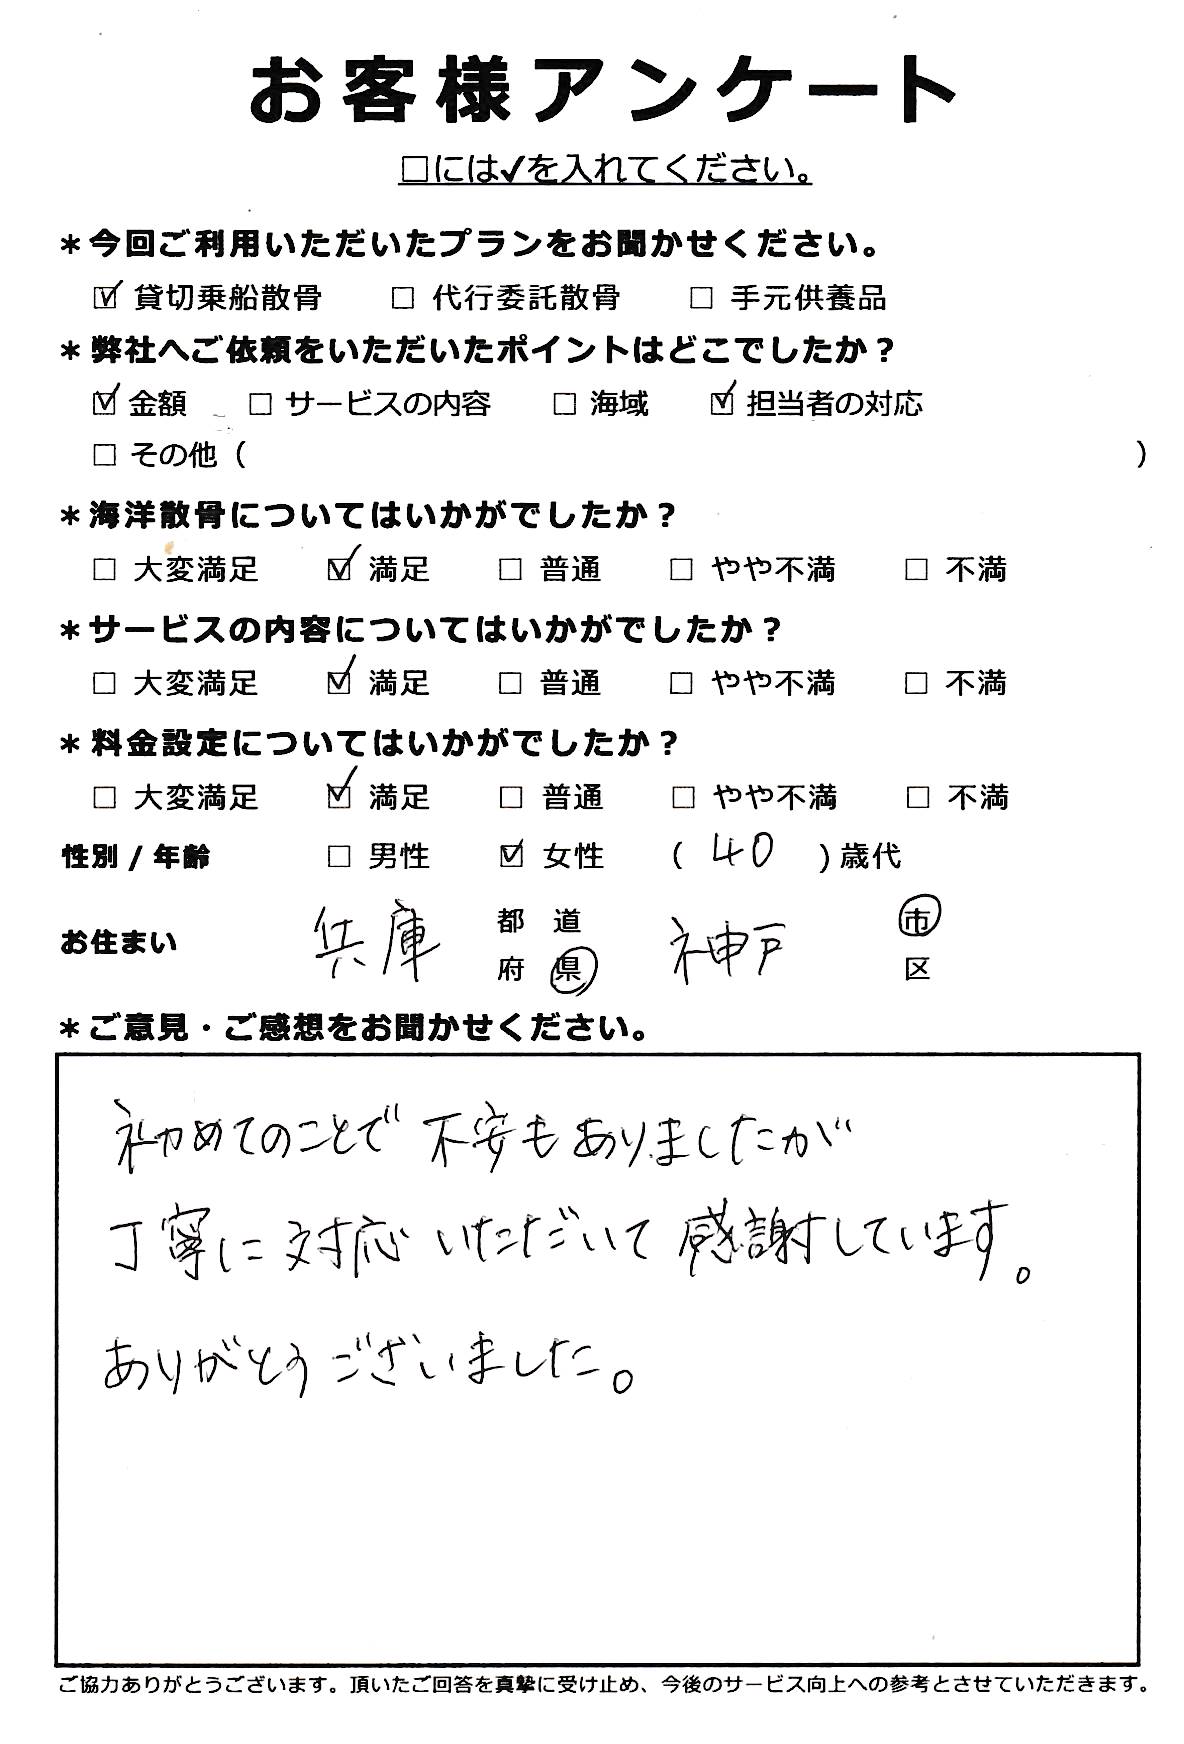 お客様アンケート
□には✓を入れてください。
＊今回ご利用いただいたプランをお聞かせください。
☑ 貸切乗船散骨 □ 代行委託散骨 □ 手元供養品
＊弊社へご依頼をいただいたポイントはどこでしたか？
☑ 金額 □ サービスの内容 □ 海域 ☑ 担当者の対応
□ その他（ ）
＊海洋散骨についてはいかがでしたか？
□ 大変満足 ☑ 満足 □ 普通 □ やや不満 □ 不満
＊サービスの内容についてはいかがでしたか？
□ 大変満足 ☑ 満足 □ 普通 □ やや不満 □ 不満
＊料金設定についてはいかがでしたか？
□ 大変満足 ☑ 満足 □ 普通 □ やや不満 □ 不満
性別 / 年齢 □ 男性 ☑ 女性 （ 40 ）歳代
お住まい 兵庫 都 道 府 県 神戸 市 区
＊ご意見・ご感想をお聞かせください。
初めてのことで不安もありましたが
丁寧に対応いただいて感謝しています。
ありがとうございました。
ご協力ありがとうございます。頂いたご回答を真摯に受け止め、今後のサービス向上への参考とさせていただきます。